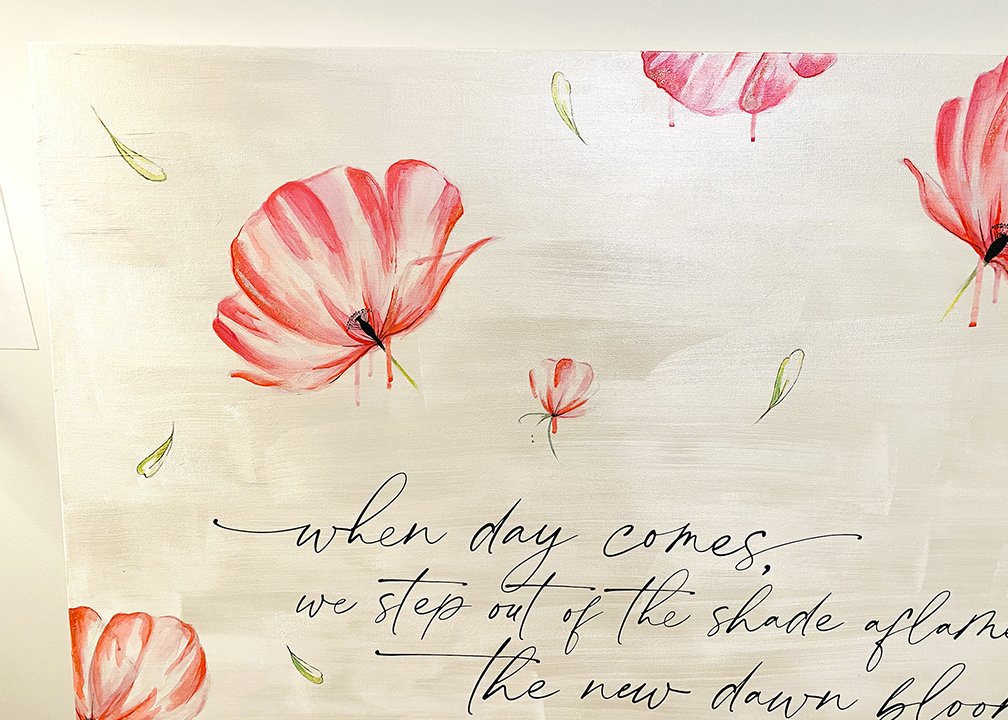 when day comes,
we step out of the shade aflame
the new dawn bloom